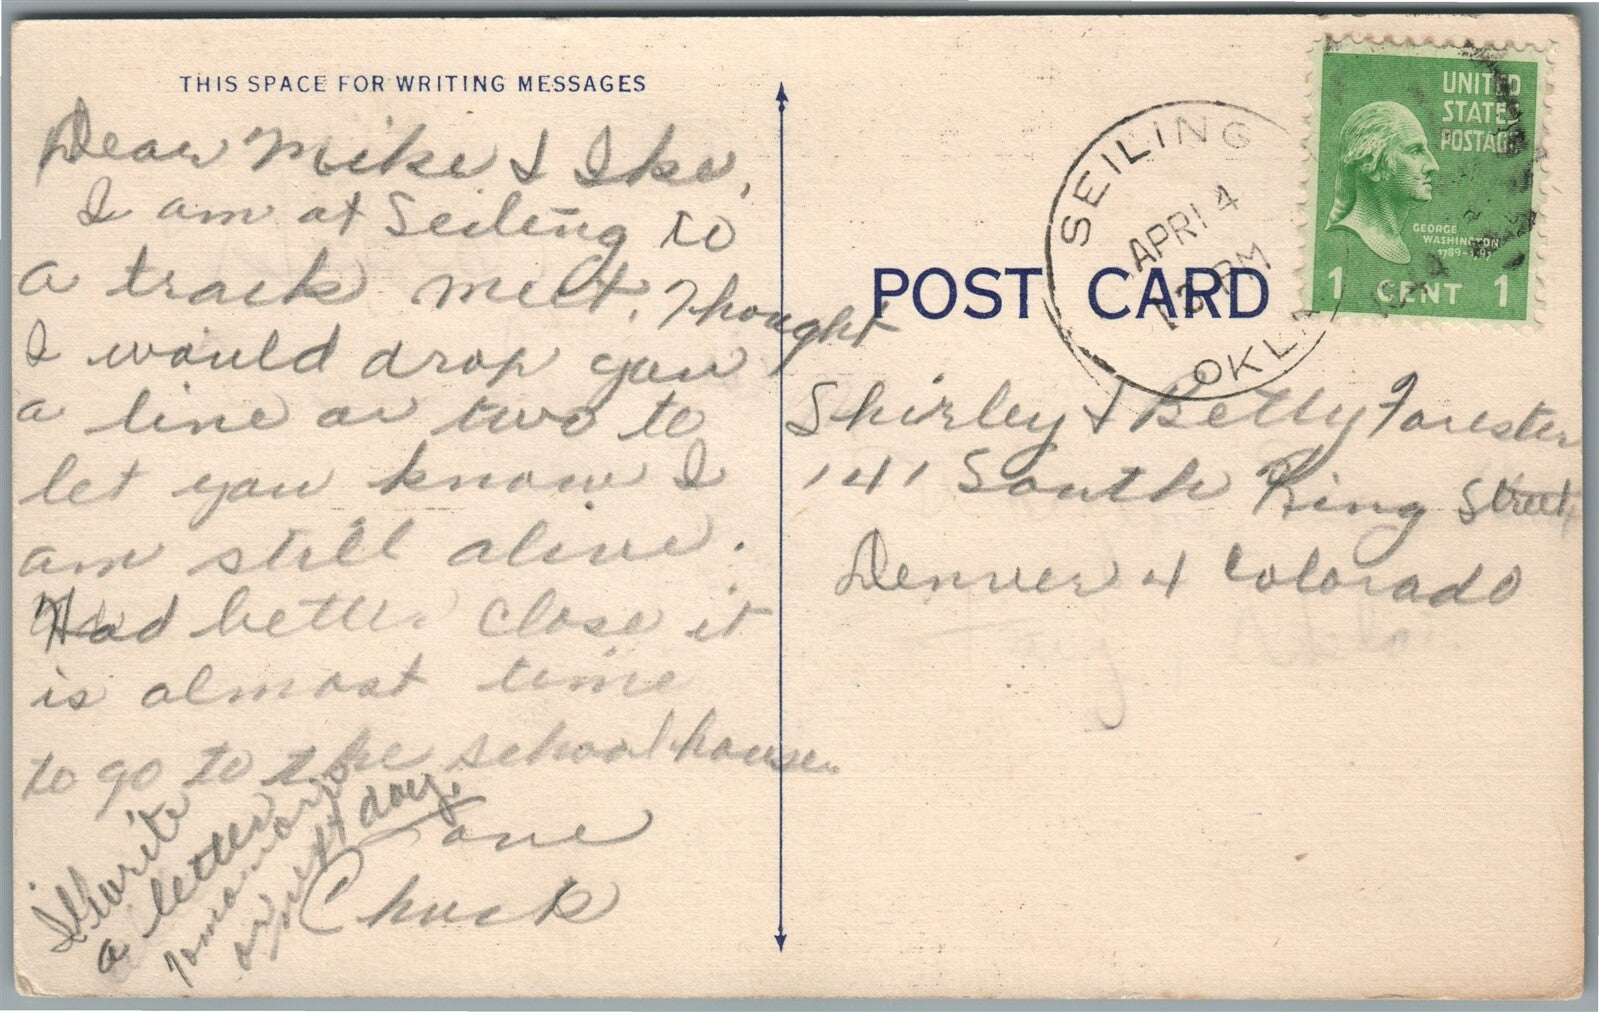 THIS SPACE FOR WRITING MESSAGES
Dear Mike & Ike,
I am at Seiling to
a track meet. Thought
I would drop you
a line or two to
let you know I
am still alive.
Had better close it
is almost time
to go to the school house.
Love
Chuck
I'll write
a letter
tomorrow
or next day.
POST CARD
SEILING
APR 14
12 PM
OKLA
UNITED
STATES
POSTAGE
GEORGE
WASHINGTON
1789-
1 CENT 1
Shirley & Betty Forester
141 South King Street,
Denver 4 Colorado